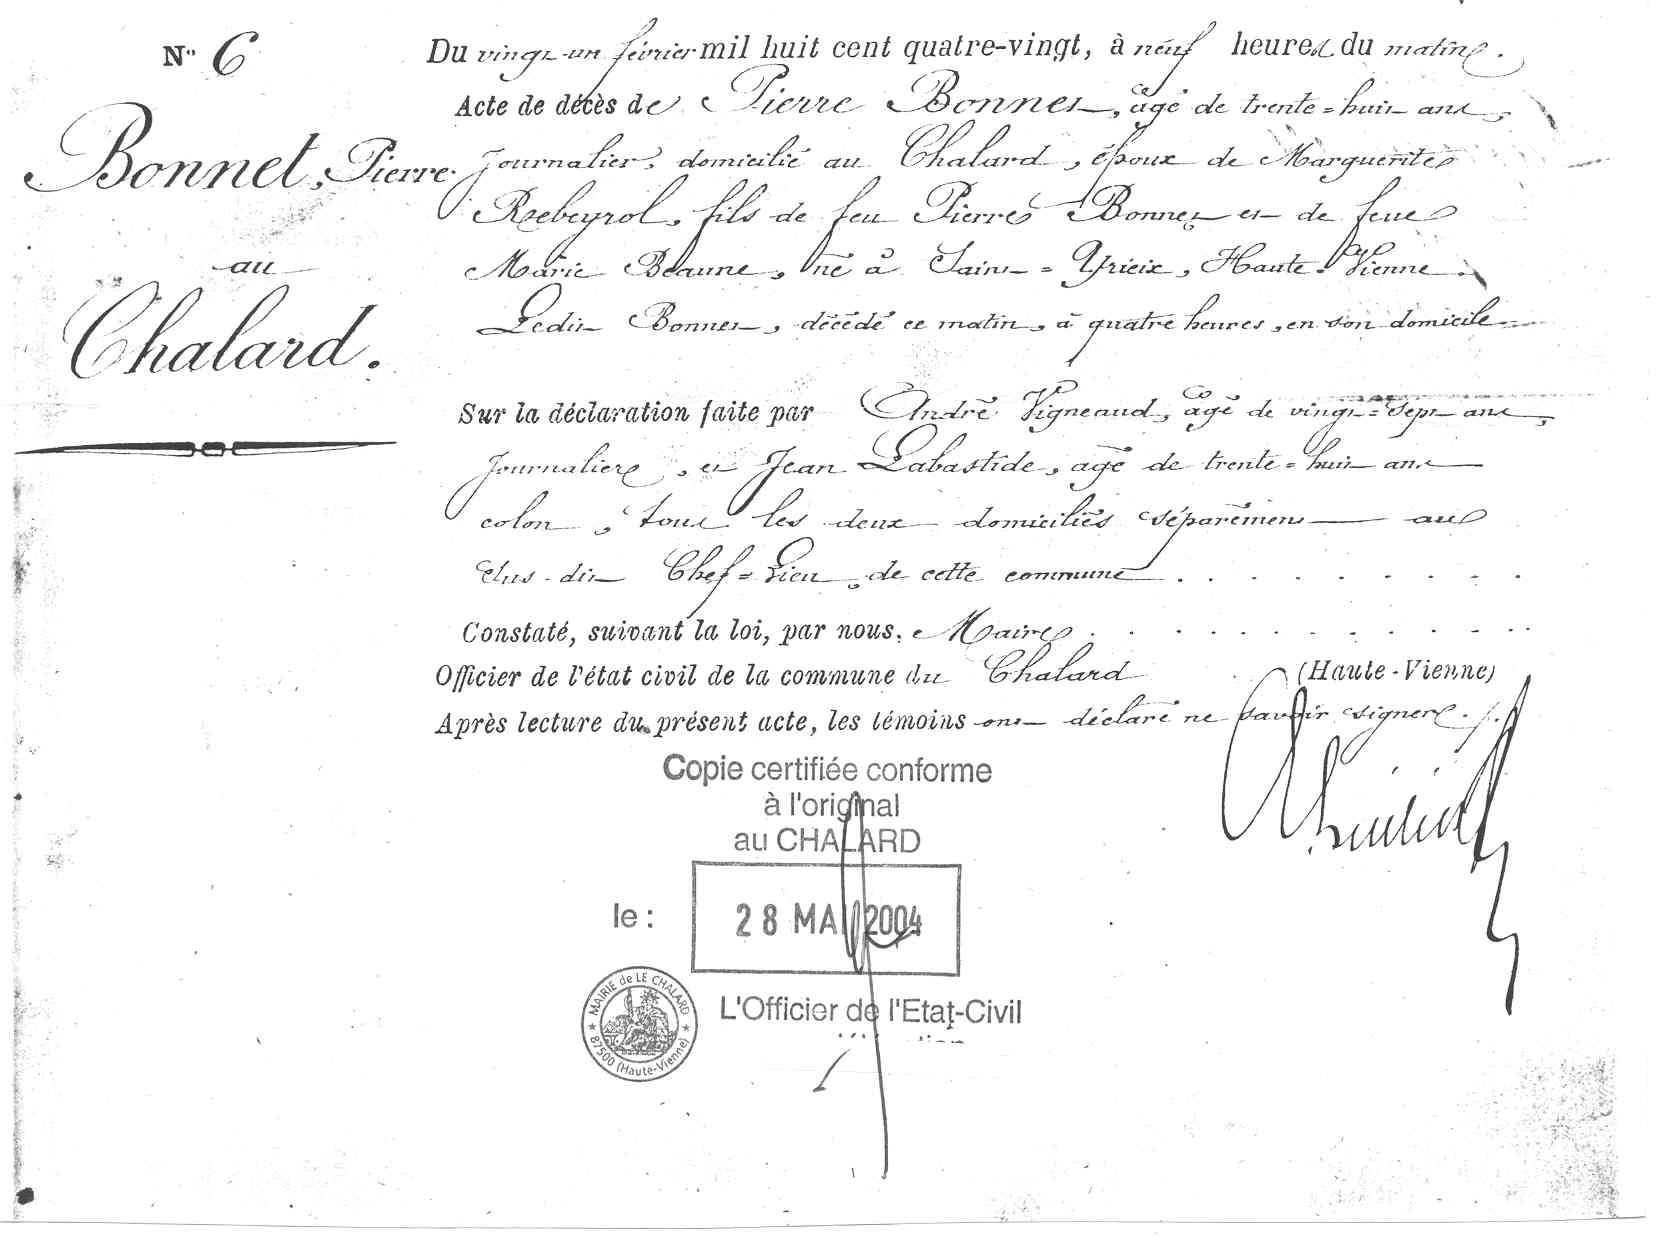 N° 6
Bonnet, Pierre
au
Chalard.
Du vingt-un février mil huit cent quatre-vingt, à neuf heures du matin.
Acte de décès de Pierre Bonnet, âgé de trente-huit ans,
journalier, domicilié au Chalard, époux de Marguerite
Rebeyrol, fils de feu Pierre Bonnet et de feue
Marie Beaune, né à Saint-Yrieix, Haute-Vienne.
Ledit Bonnet, décédé ce matin, à quatre heures, en son domicile
Sur la déclaration faite par André Vigneaud, âgé de vingt-sept ans,
journalier, et Jean Labastide, âgé de trente-huit ans
colon, tous les deux domiciliés séparément au
dit Chef-Lieu, de cette commune
Constaté, suivant la loi, par nous, Maire
Officier de l'état civil de la commune du Chalard (Haute-Vienne)
Après lecture du présent acte, les témoins ont déclaré ne savoir signer.
Copie certifiée conforme
à l'original
au CHALARD
le : 28 MAI 2004
L'Officier de l'Etat-Civil
MAIRIE de LE CHALARD
87500 (Haute-Vienne)